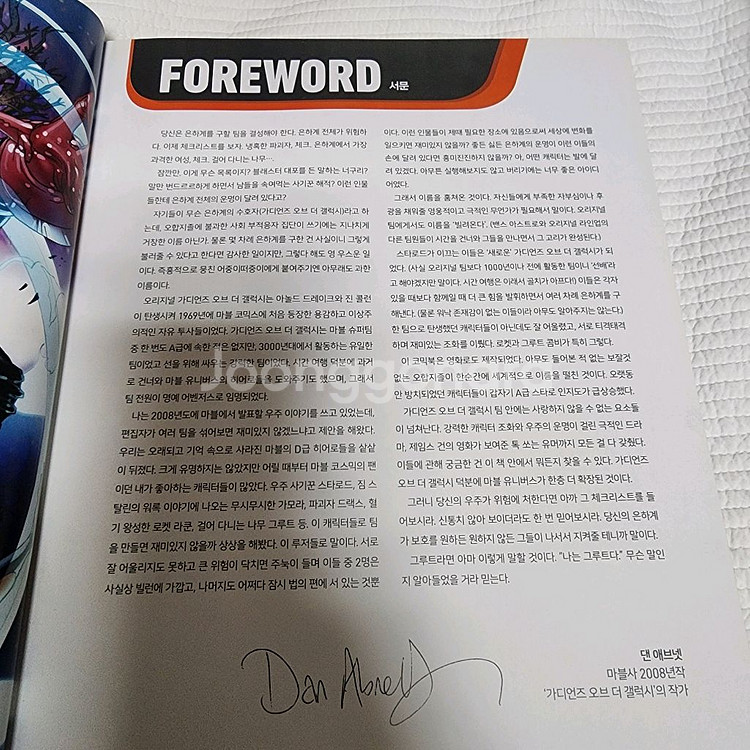 FOREWORD 서문
당신은 은하계를 구할 팀을 결성해야 한다. 은하계 전체가 위험하
다. 이제 체크리스트를 보자. 냉혹한 파괴자, 체크. 은하계에서 가장
과격한 여성, 체크. 걸어 다니는 나무….
잠깐만, 이게 무슨 목록이지? 블래스터 대포를 든 말하는 너구리?
말만 번드르르하게 하면서 남들을 속여먹는 사기꾼 해적? 이런 인물
들한테 은하계 전체의 운명이 달려 있다고?
자기들이 무슨 은하계의 수호자(가디언즈 오브 더 갤럭시)라고 하
는데, 오합지졸에 불과한 사회 부적응자 집단이 쓰기에는 지나치게
거창한 이름 아닌가. 물론 몇 차례 은하계를 구한 건 사실이니 그렇게
불러줄 수 있다고 한다면 감사한 일이지만, 그렇다 해도 영 우스운 일
이다. 즉흥적으로 뭉친 어중이떠중이에게 붙여주기엔 아무래도 과한
이름이다.
오리지널 가디언즈 오브 더 갤럭시는 아놀드 드레이크와 진 콜런
이 탄생시켜 1969년에 마블 코믹스에 처음 등장한 용감하고 이상주
의적인 자유 투사들이었다. 가디언즈 오브 더 갤럭시는 마블 슈퍼팀
중 한 번도 A급에 속한 적은 없지만, 3000년대에서 활동하는 유일한
팀이었고 선을 위해 싸우는 강력한 팀이었다. 시간 여행 덕분에 과거
로 건너와 마블 유니버스의 히어로들을 도와주기도 했으며, 그래서
팀 전원이 명예 어벤저스로 임명되었다.
나는 2008년도에 마블에서 발표할 우주 이야기를 쓰고 있었는데,
편집자가 여러 팀을 섞어보면 재미있지 않겠느냐고 제안을 해왔다.
우리는 오래되고 기억 속으로 사라진 마블의 D급 히어로들을 샅샅
이 뒤졌다. 크게 유명하지는 않았지만 어릴 때부터 마블 코스믹의 팬
이던 내가 좋아하는 캐릭터들이 많았다. 우주 사기꾼 스타로드, 짐 스
탈린의 워록 이야기에 나오는 무시무시한 가모라, 파괴자 드랙스, 혈
기 왕성한 로켓 라쿤, 걸어 다니는 나무 그루트 등. 이 캐릭터들로 팀
을 만들면 재미있지 않을까 상상을 해봤다. 이 루저들로 말이다. 서로
잘 어울리지도 못하고 큰 위험이 닥치면 주눅이 들며 이들 중 2명은
사실상 빌런에 가깝고, 나머지도 어쩌다 잠시 법의 편에 서 있는 것뿐
이다. 이런 인물들이 제때 필요한 장소에 있음으로써 세상에 변화를
일으키면 재미있지 않을까? 좋든 싫든 은하계의 운명이 이런 이들의
손에 달려 있다면 흥미진진하지 않을까? 아, 어떤 캐릭터는 발에 달
려 있겠다. 아무튼 실행해보지도 않고 버리기에는 너무 좋은 아이디
어였다.
그래서 이름을 훔쳐온 것이다. 자신들에게 부족한 자부심이나 후
광을 채워줄 영웅적이고 극적인 무언가가 필요해서 말이다. 오리지널
팀에게서도 이름을 '빌려온다'. (밴스 아스트로와 오리지널 라인업의
다른 팀원들이 시간을 건너와 그들을 만나면서 그 고리가 완성된다.)
스타로드가 이끄는 이들은 '새로운' 가디언즈 오브 더 갤럭시가 되
었다. (사실 오리지널 팀보다 1000년이나 전에 활동한 팀이니 '선배'라
고 해야겠지만 말이다. 시간 여행은 이래서 골치가 아프다!) 이들은 각자
있을 때보다 함께일 때 더 큰 힘을 발휘하면서 여러 차례 은하계를 구
해낸다. (물론 워낙 존재감이 없는 이들이라 아무도 알아주지는 않는다.)
한 팀으로 탄생했던 캐릭터들이 아닌데도 잘 어울렸고, 서로 티격태격
하며 재미있는 조화를 이뤘다. 로켓과 그루트 콤비가 특히 그렇다.
이 코믹북은 영화로도 제작되었다. 아무도 들어본 적 없는 보잘것
없는 오합지졸이 한순간에 세계적으로 이름을 떨친 것이다. 오랫동
안 방치되었던 캐릭터들이 갑자기 A급 스타로 인지도가 급상승했다.
가디언즈 오브 더 갤럭시 팀 안에는 사랑하지 않을 수 없는 요소들
이 넘쳐난다. 강력한 캐릭터 조화와 우주의 운명이 걸린 극적인 드라
마, 제임스 건의 영화가 보여준 톡 쏘는 유머까지 모든 걸 다 갖췄다.
이들에 관해 궁금한 건 이 책 안에서 뭐든지 찾을 수 있다. 가디언즈
오브 더 갤럭시 덕분에 마블 유니버스가 한층 더 확장된 것이다.
그러니 당신의 우주가 위험에 처한다면 아까 그 체크리스트를 들
어보시라. 신통치 않아 보이더라도 한 번 믿어보시라. 당신의 은하계
가 보호를 원하든 원하지 않든 그들이 나서서 지켜줄 테니까 말이다.
그루트라면 아마 이렇게 말할 것이다. "나는 그루트다." 무슨 말인
지 알아들었을 거라 믿는다.
Dan Abnett
댄 애브넷
마블사 2008년작
'가디언즈 오브 더 갤럭시'의 작가